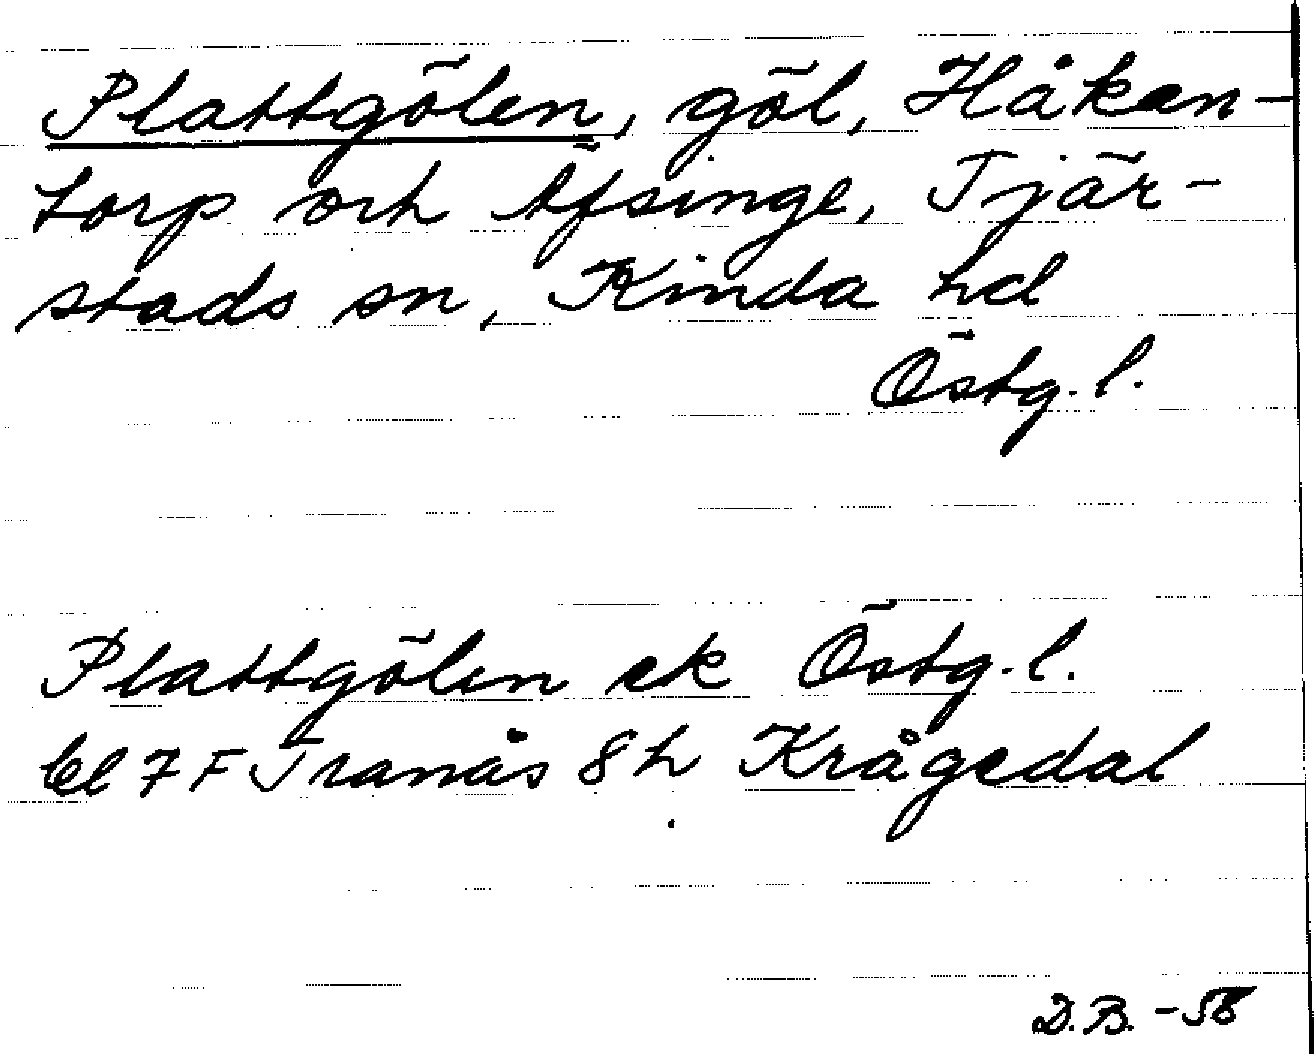 Plattgölen, göl, Håkan-
torp och Äfsinge, Tjär-
stads sn, Kinda hd
Östg. l.
Plattgölen ek Östg. l.
bl 7 F Tranås 8 h Krågedal
D.B. -58